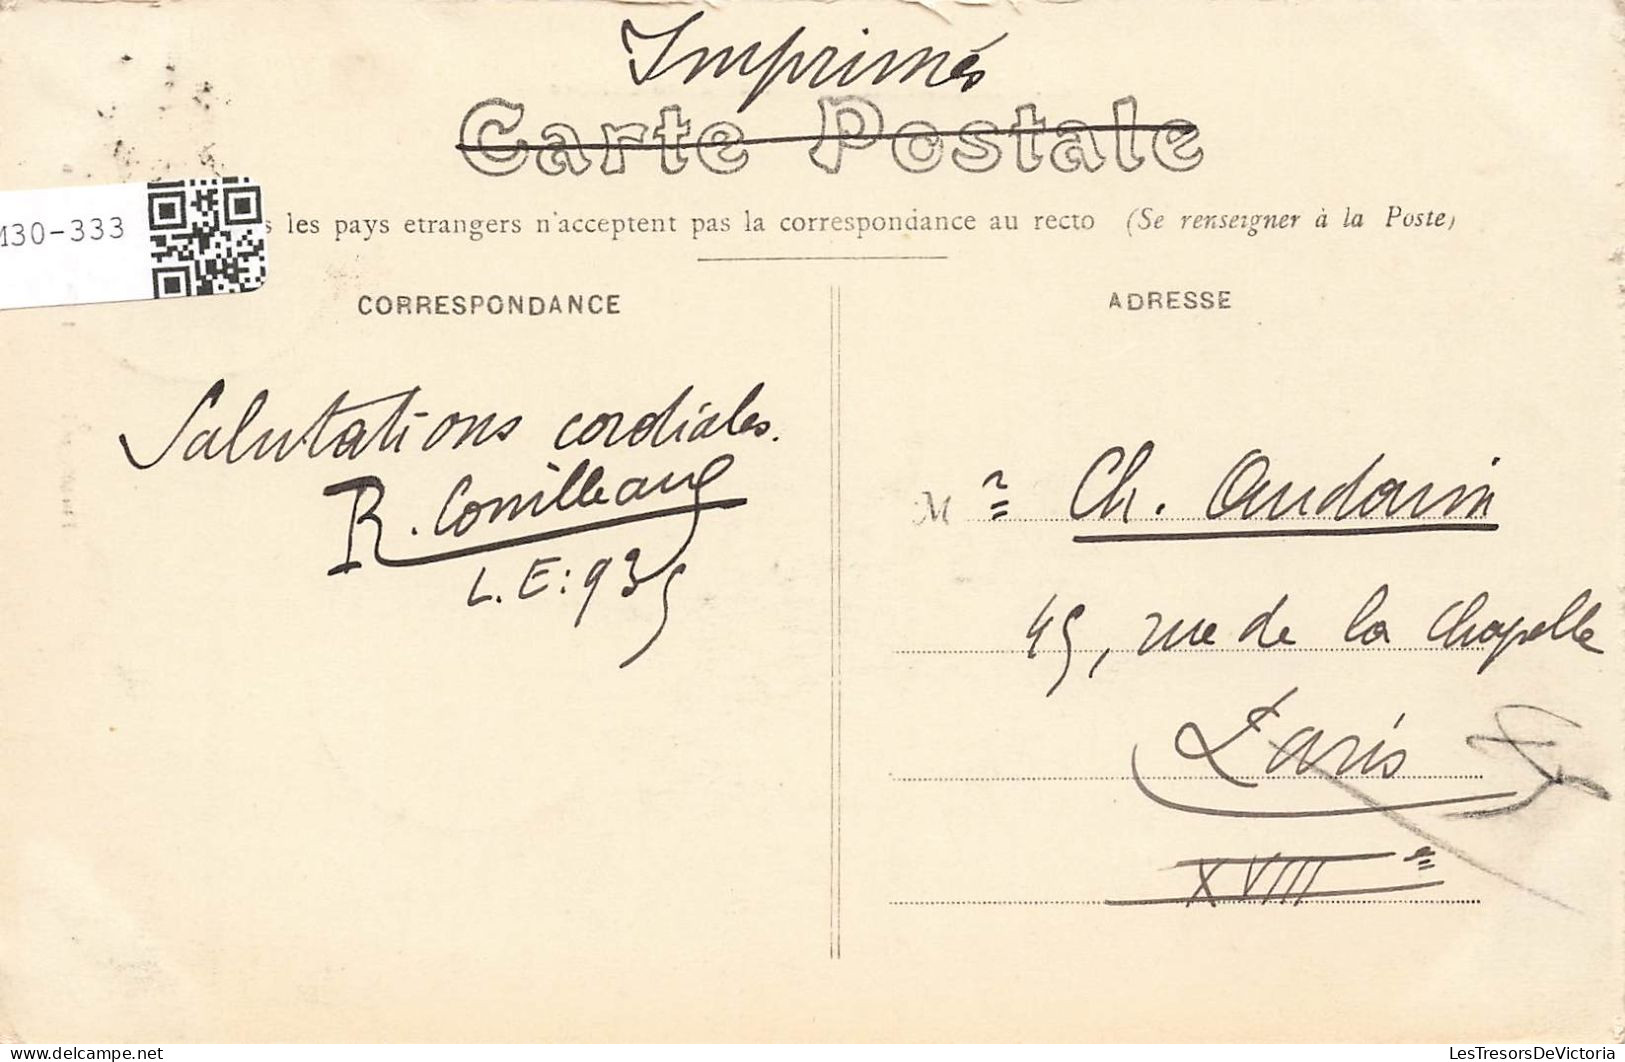 Imprimés
Carte Postale
M30-333
s les pays etrangers n'acceptent pas la correspondance au recto (Se renseigner à la Poste)
CORRESPONDANCE
ADRESSE
Salutations cordiales.
R.
L.E: 935
Mr Ch. Audouin
45, rue de la Chapelle
Paris
XVIIIe
LesTresorsDeVictoria
delcampe.net